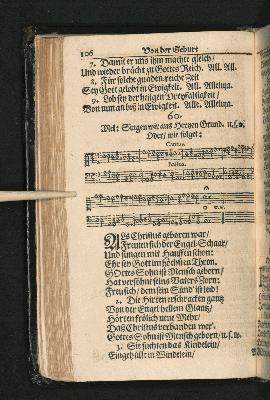 106 Von der Geburt
7. Damit er uns ihm machte gleich/
Und wieder brächt zu Gottes Reich. All. All.
8. Für solche gnaden-reiche Zeit
Sey Gott gelobt in Ewigkeit. All. All. Alleluja.
9. Lob sey der heilgen Dreyfaltigkeit/
Von nun an biß in Ewigkeit. Alle. Alleluja.
60.
Mel: Singen wir aus Hertzen Grund. u.s.w.
Oder/ wie folget:
Cantus.
Bassus.
ALs Christus geboren war/
Freuten sich der Engel Schaar/
Und sungen mit Hauffen schon:
Ehr sey Gott im höchsten Thron.
GOttes Sohn ist Mensch geborn/
Hat versöhnt seins Vaters Zorn:
Freu sich/ dem sein Sünd ist leid!
2. Die Hirten erschracken gantz
Von der Engel hellem Glantz/
Hörten frölich neue Mehr/
Daß Christus verhanden wer.
Gottes Sohn ist Mensch geborn/ u.s.w.
3. Sie suchten das Kindelein/
Eingehüllt in Windelein/